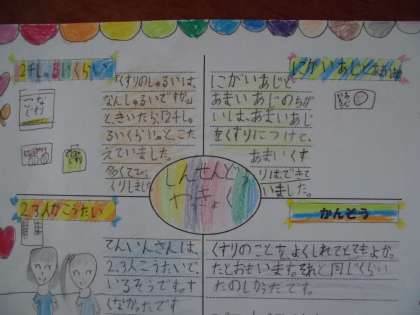 ２千しゅるいくらい
くすりのしゅるいは、
なんしゅるいですか。
ときいたら、2千しゅ
るいくらい。と、こた
えていました。
多くて
くりしました
にがいあじと
にがいあじと
あまいあじのちが
いは、あまいあじ
をくすりにつけて、
あまいくす
りはできて
いました。
しんせんどう
やっきょく
2.3人かこうたい
てんいんさんは、
2、3人こうたいで、
いるそうです。す
くなかったです
かんそう
くすりのことを、よくしれてとてもよか
ったとおもいます。それと同じくらい
たのしかったです。